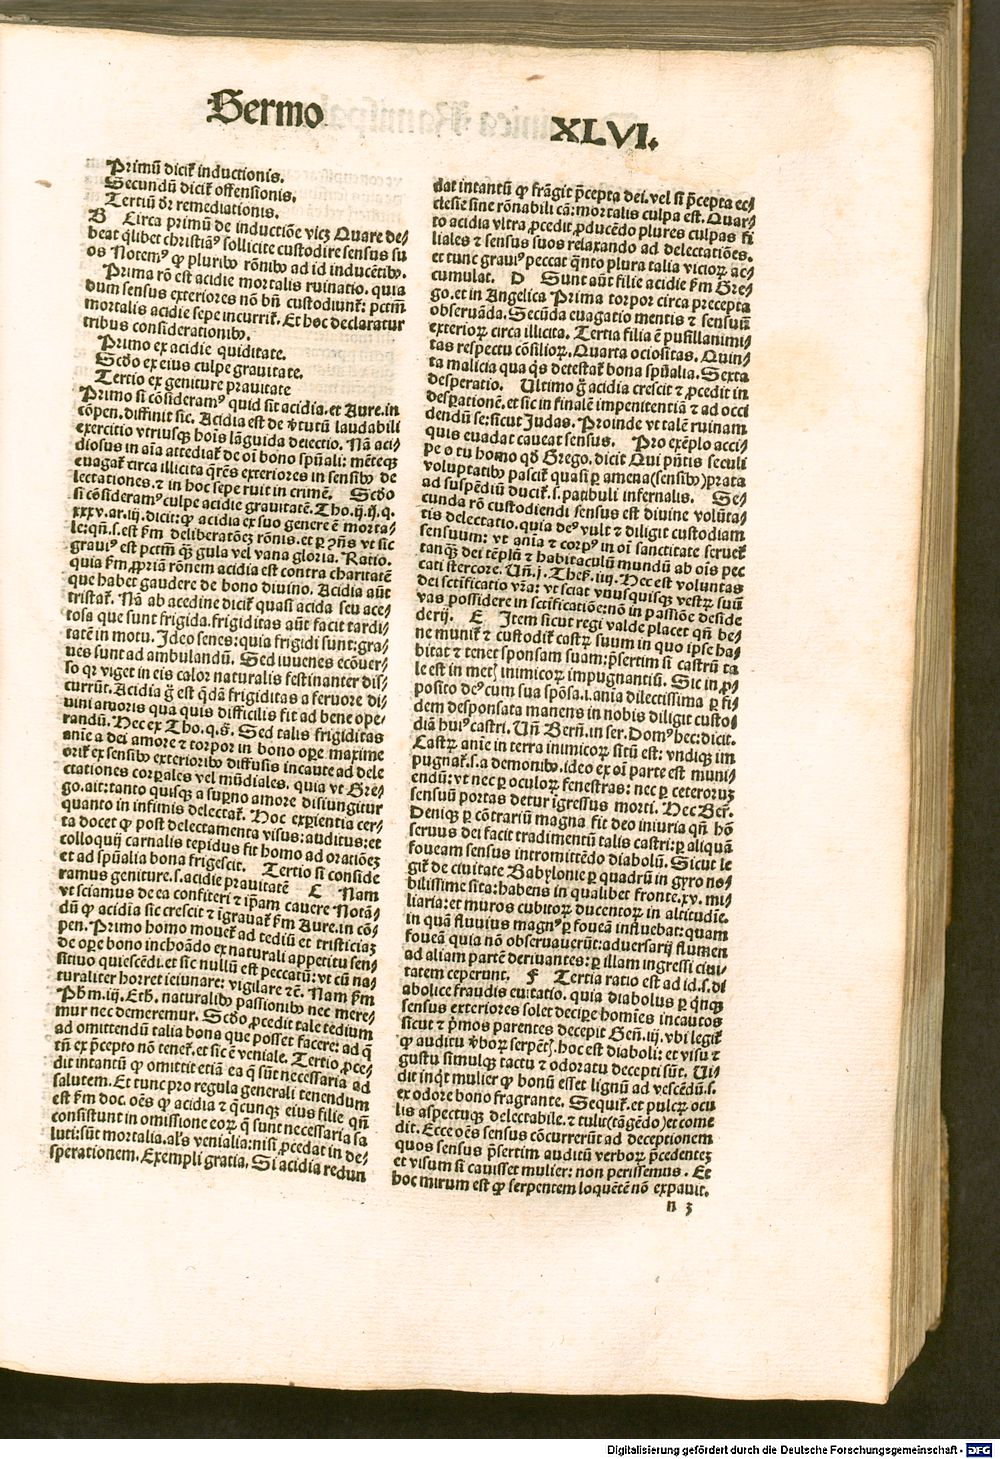 Sermo XLVI.
Primũ diciť inductionis.
Secundũ diciť offensionis.
Tertiũ dr̃ remediationis.
B Circa primũ de inductiõe vicꝫ Quare de⸗
beat q̃libet christianꝰ sollicite custodire sensus su
os Notemꝰ ꝙ pluribꝰ rõnibꝰ ad id inducẽtibꝰ.
Prima rõ est acidie mortalis ruinatio. quia
dum sensus exteriores nõ bñ custodiunť: pctm̃
mortalis acidie sepe incurriť. Et hoc declaratur
tribus considerationibꝰ.
Primo ex acidie quiditate.
Scd̃o ex eius culpe grauitate.
Tertio ex geniture prauitate
Primo si cõsideramꝰ quid sit acidia. et Aure. in
cõpen. diffinit sic. Acidia est de v̾tutũ laudabili
exercitio vtriusqꝫ hoĩs lãguida deiectio. Nã aci⸗
diosus in aĩa attediať de oĩ bono spũali: mẽteqꝫ
euagať circa illicita q̃rẽs exteriores in sensibꝰ de
lectationes. ⁊ in hoc sepe ruit in crimẽ. Scd̃o
si cõsideramꝰ culpe acidie grauitatẽ. Tho. ij. ij. q.
xxxv. ar. iij. dicit: ꝙ acidia ex suo genere ẽ morta⸗
le: qñ. s. est fm̃ deliberatõeꝫ rõnis. et ꝑ ꝯñs vt sic
grauiꝰ est pctm̃ qꝫ̃ gula vel vana gloria. Ratio.
quia fm̃ ꝓpriã rõnem acidia est contra charitatẽ
que habet gaudere de bono diuino. Acidia aũt
tristať. Nã ab acedine diciť quasi acida seu ace⸗
tosa que sunt frigida. frigiditas aũt facit tardi⸗
tatẽ in motu. Ideo senes: quia frigidi sunt: gra⸗
ues sunt ad ambulandũ. Sed iuuenes ecõuer⸗
so qr viget in eis calor naturalis festinanter dis⸗
currũt. Acidia g̃ est q̃dã frigiditas a feruore di⸗
uini amoris qua quis difficilis fit ad bene ope⸗
randũ. Hec ex Tho. q. s̃. Sed talis frigiditas
anĩe a dei amore ⁊ torpor in bono oꝑe maxime
oriť ex sensibꝰ exterioribꝰ diffusis incaute ad dele
ctationes corꝑales vel mũdiales. quia vt Gre⸗
go. ait: tanto quisqꝫ a suꝑno amore disiungitur
quanto in infimis delectať. Hoc exꝑientia cer⸗
ta docet ꝙ post delectamenta visus: auditus: et
colloquij carnalis tepidus fit homo ad oratiõeꝫ
et ad spũalia bona frigescit. Tertio si conside
ramus geniture. s. acidie prauitatẽ C Nam
vt sciamus de ea confiteri ⁊ ip̃am cauere Notã⸗
dũ ꝙ acidia sic crescit ⁊ ĩgrauať fm̃ Aure. in cõ⸗
pen. Primo homo moueť ad tediũ et tristiciaꝫ
de oꝑe bono inchoãdo ex naturali appetitu sen⸗
sitiuo quiescẽdi. et sic nullũ est peccatũ: vt cũ na⸗
turaliter horret ieiunare: vigilare ⁊cẽ. Nam fm̃
Pħm. iij. Eth. naturalibꝰ passionibꝰ nec mere⸗
mur nec demeremur. Scd̃o ꝓcedit tale tedium
ad omittendũ talia bona que posset facere: ad q̃
tñ ex p̃cepto nõ teneť. et sic ẽ veniale. Tertio ꝓce⸗
dit intantũ ꝙ omittit etiã ea q̃ sũt necessaria ad
salutem. Et tunc pro regula generali tenendum
est fm̃ doc. oẽs ꝙ acidia ⁊ q̃cunqꝫ eius filie qñ
consistunt in omissione eoꝝ q̃ sunt necessaria sa
luti: sũt mortalia. als̃ venialia: nisi ꝓcedat in de⸗
sperationem. Exempli gratia. Si acidia redun
dat intantũ ꝙ frãgit p̃cepta dei. vel si p̃cepta ec⸗
clesie sine rõnabili cã: mortalis culpa est. Quar⸗
to acidia vltra ꝓcedit ꝓducẽdo plures culpas fi
liales ⁊ sensus suos relaxando ad delectatiões.
et tunc grauiꝰ peccat q̃nto plura talia vicioꝝ ac⸗
cumulat. D Sunt aũt filie acidie fm̃ Gre⸗
go. et in Angelica Prima torpor circa precepta
obseruãda. Secũda euagatio mentis ⁊ sensuũ
exterioꝝ circa illicita. Tertia filia ẽ pusillanimi⸗
tas respectu cõsilioꝝ. Quarta ociositas. Quin⸗
ta malicia qua q̃s detestať bona spũalia. Sexta
desperatio. Ultimo g̃ acidia crescit ⁊ ꝓcedit in
desꝑationẽ. et sic in finalẽ impenitentiã ⁊ ad occi
dendũ se: sicut Judas. Proinde vt talẽ ruinam
quis euadat caueat sensus. Pro exẽplo acci⸗
pe o tu homo qđ Grego. dicit Qui pñtis seculi
voluptatibꝰ pasciť quasi ꝑ amena (sensibꝰ) prata
ad suspẽdiũ duciť. s. patibuli infernalis. Se⸗
cunda rõ custodiendi sensus est diuine volũta⸗
tis delectatio. quia deꝰ vult ⁊ diligit custodiam
sensuum: vt anĩa ⁊ corpꝰ in oĩ sanctitate serueť
tanqꝫ̃ dei tẽplũ ⁊ habitaculũ mundũ ab oĩs pec
cati stercore. Uñ. j. Thes̃. iiij. Hec est voluntas
dei sctificatio vr̃a: vt sciat vnusquisqꝫ vestꝝ suũ
vas possidere in sctificatiõe: nõ in passiõe deside
derij. E Item sicut regi valde placet qñ be⸗
ne muniť ⁊ custodiť castꝝ suum in quo ip̃e ha⸗
bitat ⁊ tenet sponsam suam: p̃sertim si castrũ ta
le est in met̃ inimicoꝝ impugnantiũ. Sic in ꝓ⸗
posito deꝰ cum sua spõsa. i. anĩa dilectissima ꝑ fi⸗
dem desponsata manens in nobis diligit custo⸗
diã huiꝰ castri. Uñ Berñ. in ser. Domꝰ hec: dicit.
Castꝝ anĩe in terra inimicoꝝ sitũ est: vndiqꝫ im
pugnať. s. a demonibꝰ. ideo ex oĩ parte est muni⸗
endũ: vt nec ꝑ oculoꝝ fenestras: nec ꝑ ceteroruꝫ
sensuũ portas detur ĩgressus morti. Hec Ber̃.
Deniqꝫ ꝑ cõtrariũ magna fit deo iniuria qñ hõ
seruus dei facit tradimentũ talis castri: ꝑ aliquã
foueam sensus intromittẽdo diabolũ. Sicut le
giť de ciuitate Babylonie ꝑ quadrũ in gyro no⸗
bilissime sita: habens in qualibet fronte. xv. mi⸗
liaria: et muros cubitoꝝ ducentoꝝ in altitudĩe.
in quã fluuius magnꝰ ꝑ foueã influebat: quam
foueã quia nõ obseruauerũt: aduersarij flumen
ad aliam partẽ deriuantes: ꝑ illam ingressi ciui⸗
tatem ceperunt. F Tertia ratio est ad id. s. di
abolice fraudis euitatio. quia diabolus ꝑ q̃nqꝫ
sensus exteriores solet deciꝑe homĩes incautos
sicut ⁊ p̃mos parentes decepit Geñ. iij. vbi legiť
ꝙ auditu v̾boꝝ serpẽt̃. hoc est diaboli: et visu ⁊
gustu simulqꝫ tactu ⁊ odoratu decepti sũt. Ui⸗
dit inq̃t mulier ꝙ bonũ esset lignũ ad vescẽdũ. s.
ex odore bono fragrante. Sequiť. et pulcꝝ ocu
lis aspectuqꝫ delectabile. ⁊ tulit (tãgẽdo) et come
dit. Ecce oẽs sensus cõcurrerũt ad deceptionem
quos sensus p̃sertim auditũ verboꝝ p̃cedenteꝫ
et visum si cauisset mulier: non perissemus. Et
hoc mirum est ꝙ serpentem loquẽtẽ nõ expauit.
n 3
Digitalisierung gefördert durch die Deutsche Forschungsgemeinschaft - DFG